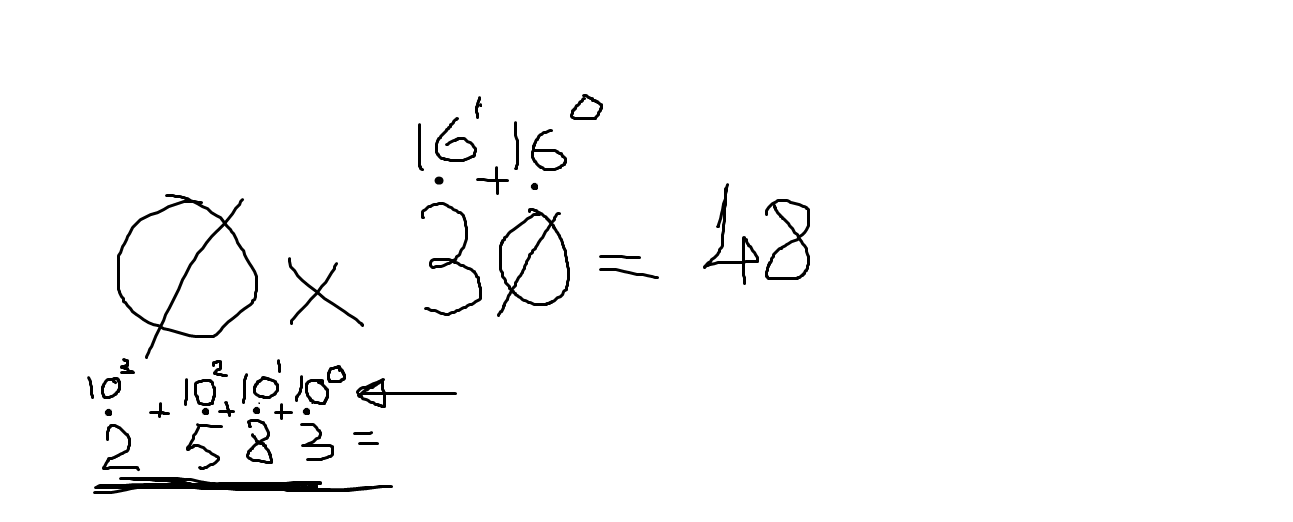 16¹ 16⁰
. + .
0 x 30 = 48
10³ 10² 10¹ 10⁰
. + . + . + .
2 5 8 3 =